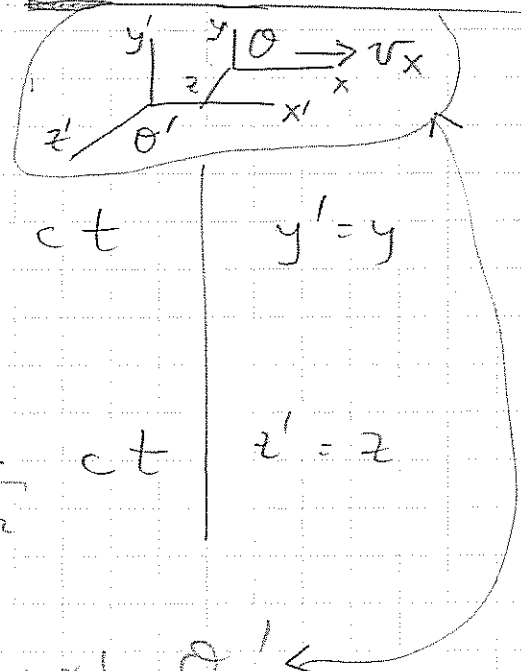 y' y O → v_x
z x
z' O' x'
ct y' = y
ct z' = z
O'